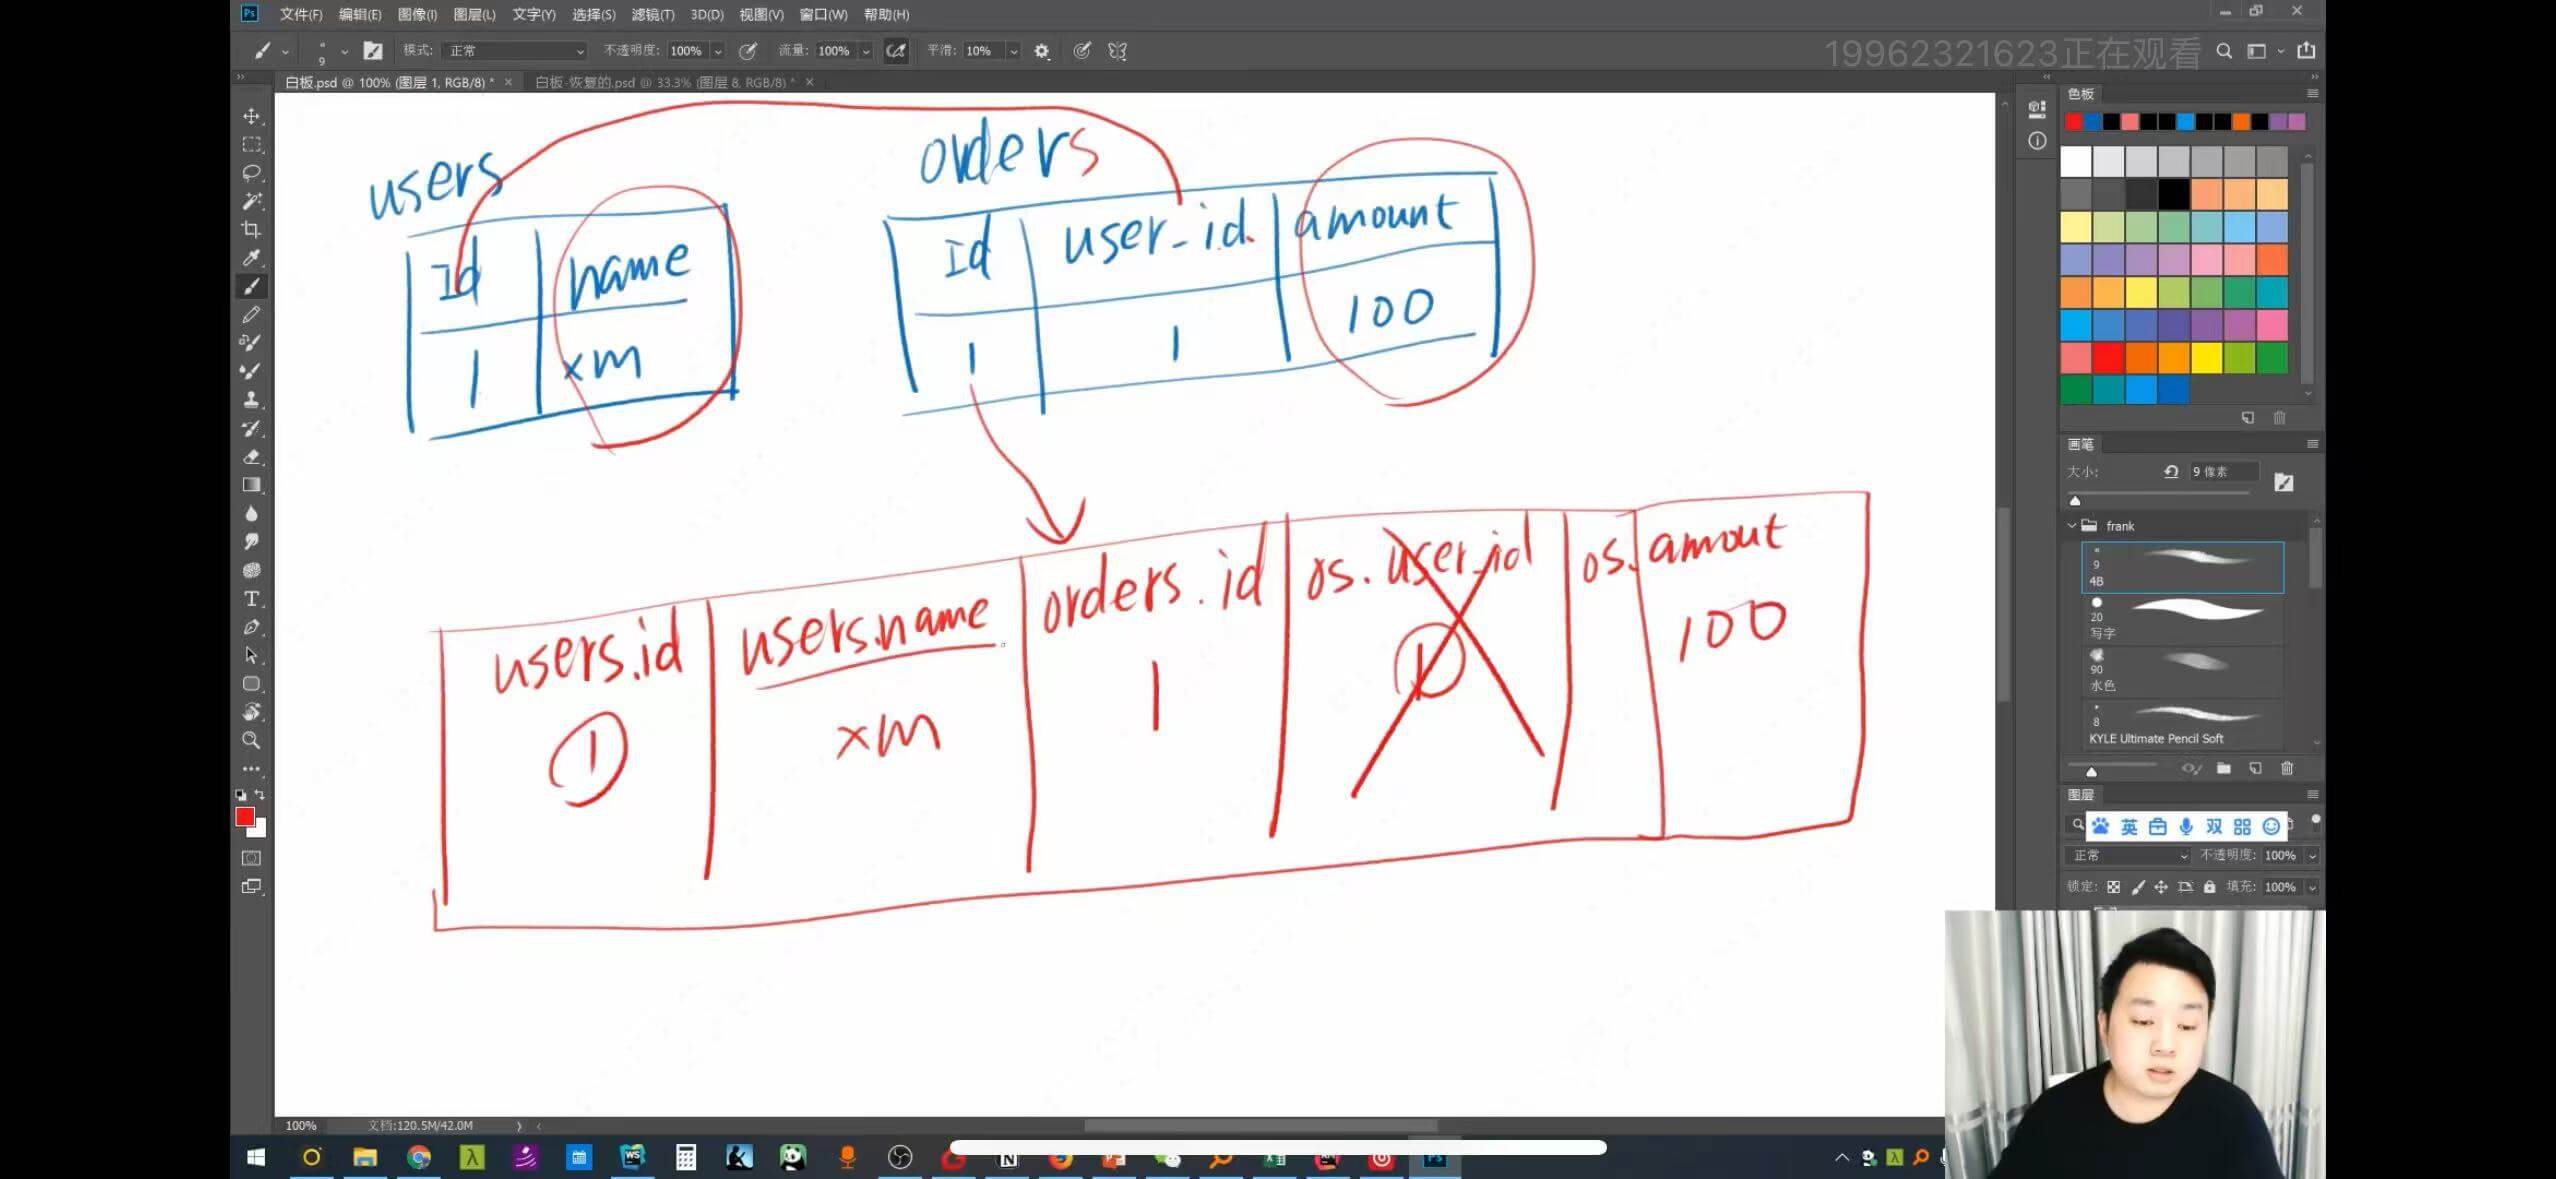 文件(F) 编辑(E) 图像(I) 图层(L) 文字(Y) 选择(S) 滤镜(T) 3D(D) 视图(V) 窗口(W) 帮助(H)
9 模式: 正常 不透明度: 100% 流量: 100% 平滑: 10%
19962321623正在观看
白板.psd @ 100% (图层 1, RGB/8) * × 白板-恢复的.psd @ 33.3% (图层 8, RGB/8) * ×
users
Id name
1 xm
orders
Id user_id amount
1 1 100
users.id users.name orders.id os.user_id os.amout
1 xm 1 1 100
色板
画笔
大小: 9 像素
frank
9
4B
20
写字
90
水色
8
KYLE Ultimate Pencil Soft
图层
英 双
正常 不透明度: 100%
锁定: 填充: 100%
100% 文档:120.5M/42.0M